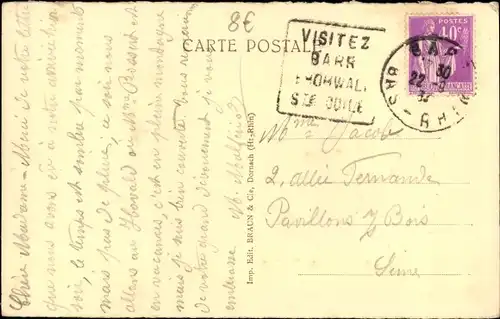 8€
CARTE POSTALE
VISITEZ
BARR
HOHWALD
STE ODILE
POSTES
40c
BARR
BAS
RHIN
22
30
Mme Jacob
2, allée Fernande
Pavillons s/ Bois
Seine
Imp. Edit. BRAUN & Cie, Dornach (Ht-Rhin)
Chère Madame - Merci de votre lettre
que nous avons eu à notre arrivée hier
soir, le temps est sombre par moments
mais pas de pluie, ce soir nous
allons au Howald ou Mme est
en vacances, c'est en pleine montagne
mais je suis bien couverte. Vous
de votre grand dévouement je vous
embrasse M.